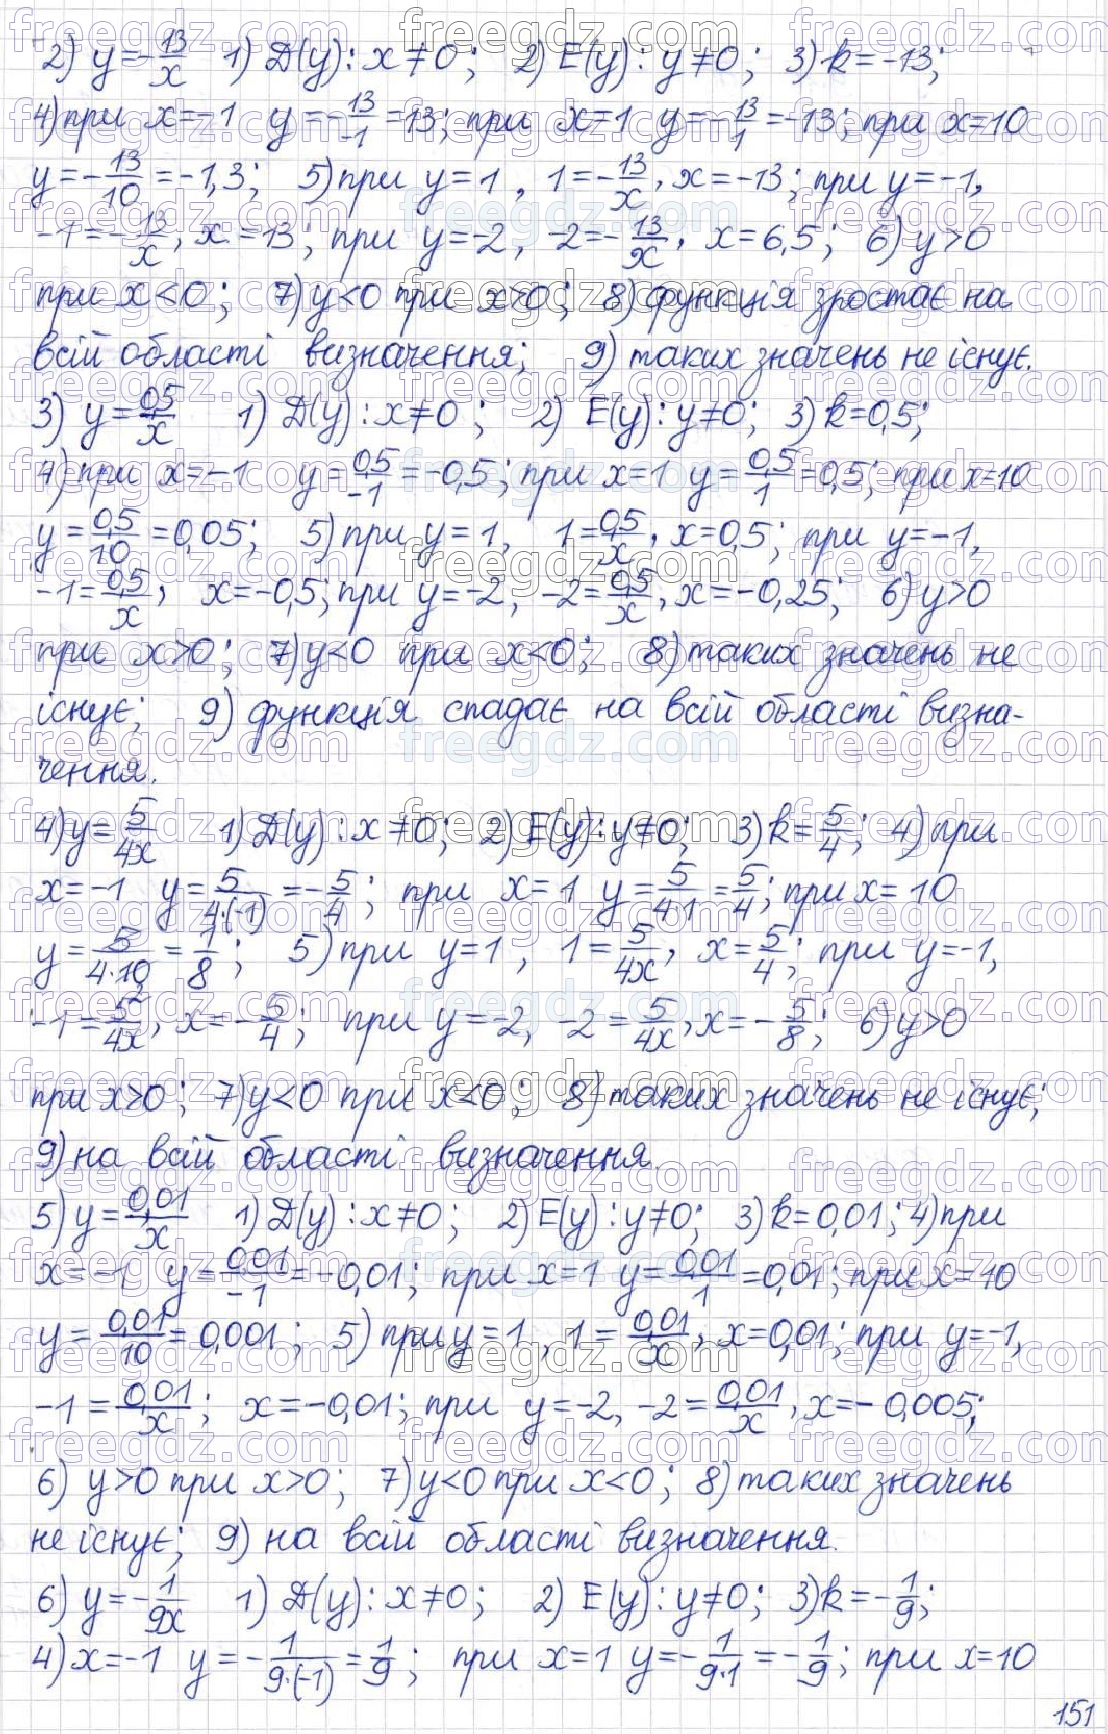 2) y=-13/x 1) D(y): x≠0; 2) E(y): y≠0; 3) k=-13;
4) при x=-1 y=-13/-1=13; при x=1 y=-13/1=-13; при x=10
y=-13/10=-1,3; 5) при y=1, 1=-13/x, x=-13; при y=-1,
-1=-13/x, x=13; при y=-2, -2=-13/x, x=6,5; 6) y>0
при x<0; 7) y<0 при x>0; 8) функція зростає на
всій області визначення; 9) таких значень не існує.
3) y=0,5/x 1) D(y): x≠0; 2) E(y): y≠0; 3) k=0,5;
4) при x=-1 y=0,5/-1=-0,5; при x=1 y=0,5/1=0,5; при x=10
y=0,5/10=0,05; 5) при y=1, 1=0,5/x, x=0,5; при y=-1,
-1=0,5/x, x=-0,5; при y=-2, -2=0,5/x, x=-0,25; 6) y>0
при x>0; 7) y<0 при x<0; 8) таких значень не
існує; 9) функція спадає на всій області визна-
чення.
4) y=5/4x 1) D(y): x≠0; 2) E(y): y≠0; 3) k=5/4; 4) при
x=-1 y=5/4·(-1)=-5/4; при x=1 y=5/4·1=5/4; при x=10
y=5/4·10=1/8; 5) при y=1, 1=5/4x, x=5/4; при y=-1,
-1=5/4x, x=-5/4; при y=-2, -2=5/4x, x=-5/8; 6) y>0
при x>0; 7) y<0 при x<0; 8) таких значень не існує;
9) на всій області визначення.
5) y=0,01/x 1) D(y): x≠0; 2) E(y): y≠0; 3) k=0,01; 4) при
x=-1 y=0,01/-1=-0,01; при x=1 y=0,01/1=0,01; при x=10
y=0,01/10=0,001; 5) при y=1, 1=0,01/x, x=0,01; при y=-1,
-1=0,01/x; x=-0,01; при y=-2, -2=0,01/x, x=-0,005;
6) y>0 при x>0; 7) y<0 при x<0; 8) таких значень
не існує; 9) на всій області визначення.
6) y=-1/9x 1) D(y): x≠0; 2) E(y): y≠0; 3) k=-1/9;
4) x=-1 y=-1/9·(-1)=1/9; при x=1 y=-1/9·1=-1/9; при x=10
151
freegdz.com